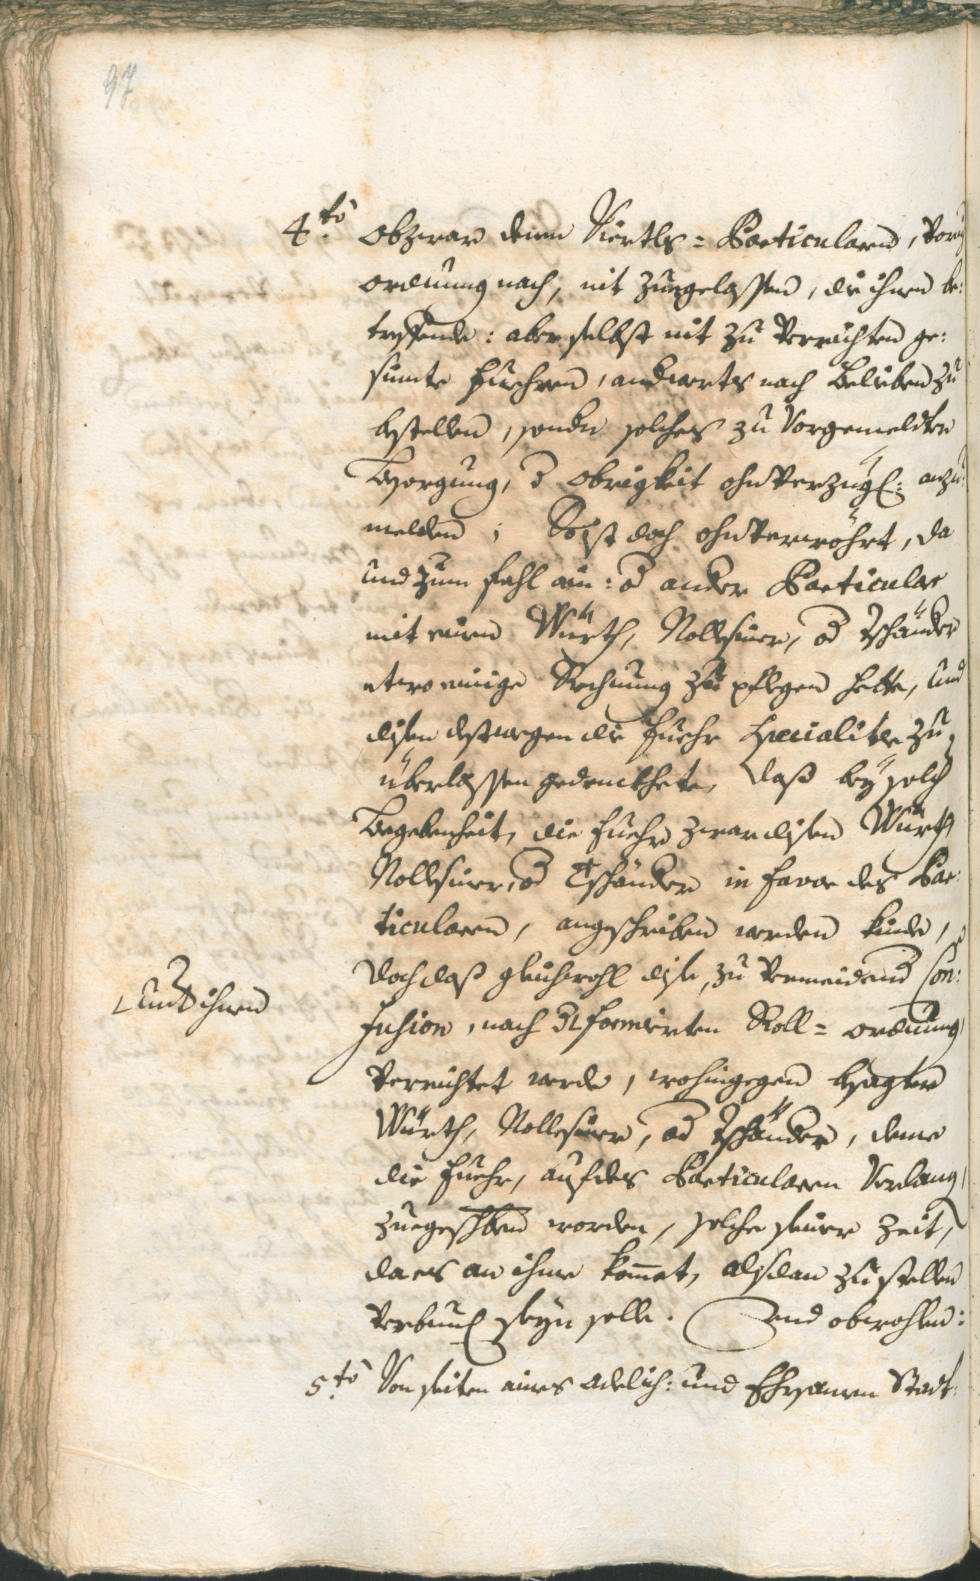 97
4to Obzwar denen Viertls=Particularn, Vor
ordnung nach, nit zuegelassen, die ihnen be:
treffende: aber selbst nit zu verrichten ge:
sinnte Fuehren, anderwerts nach belieben zu
bestellen, sonder solches zu Vorgemeldter
Besorgung, d Obrigkeit ohnverzügl: anzu:
melden; So ist doch ohnverwöhrt, da
und zum fahl ain: od ander Particular
mit einem Würth, Rollfuerer, od Tschander
etwo einige Rechnung zu pflegen hette, und
disen destwegen die Fuehr specialiter zu
überlassen gedenckhete, daß bey solch
Begebenheit, die Fuehr zwar disen Würth
Rollfuerer, od Tschänder in favor des Par:
ticularn, angeschriben werden künde,
doch daß gleichwohl dise, zu Vermeidend Con:
Und ihnen
fusion, nach formierten Roll=ordnung
verrichtet werde, wohingegen besagter
Würth, Rollfuerer, od Tschänder, deme
die Fuehr, auf des Particularn Verlang
zuegeschriben worden, solche seiner Zeit,
da es an ihme kommet, alsdan zu stellen
verbundl seyn solle. Und obwohlen:
5to Von seiten eines Adelich: und Ehrsamen Stadt: